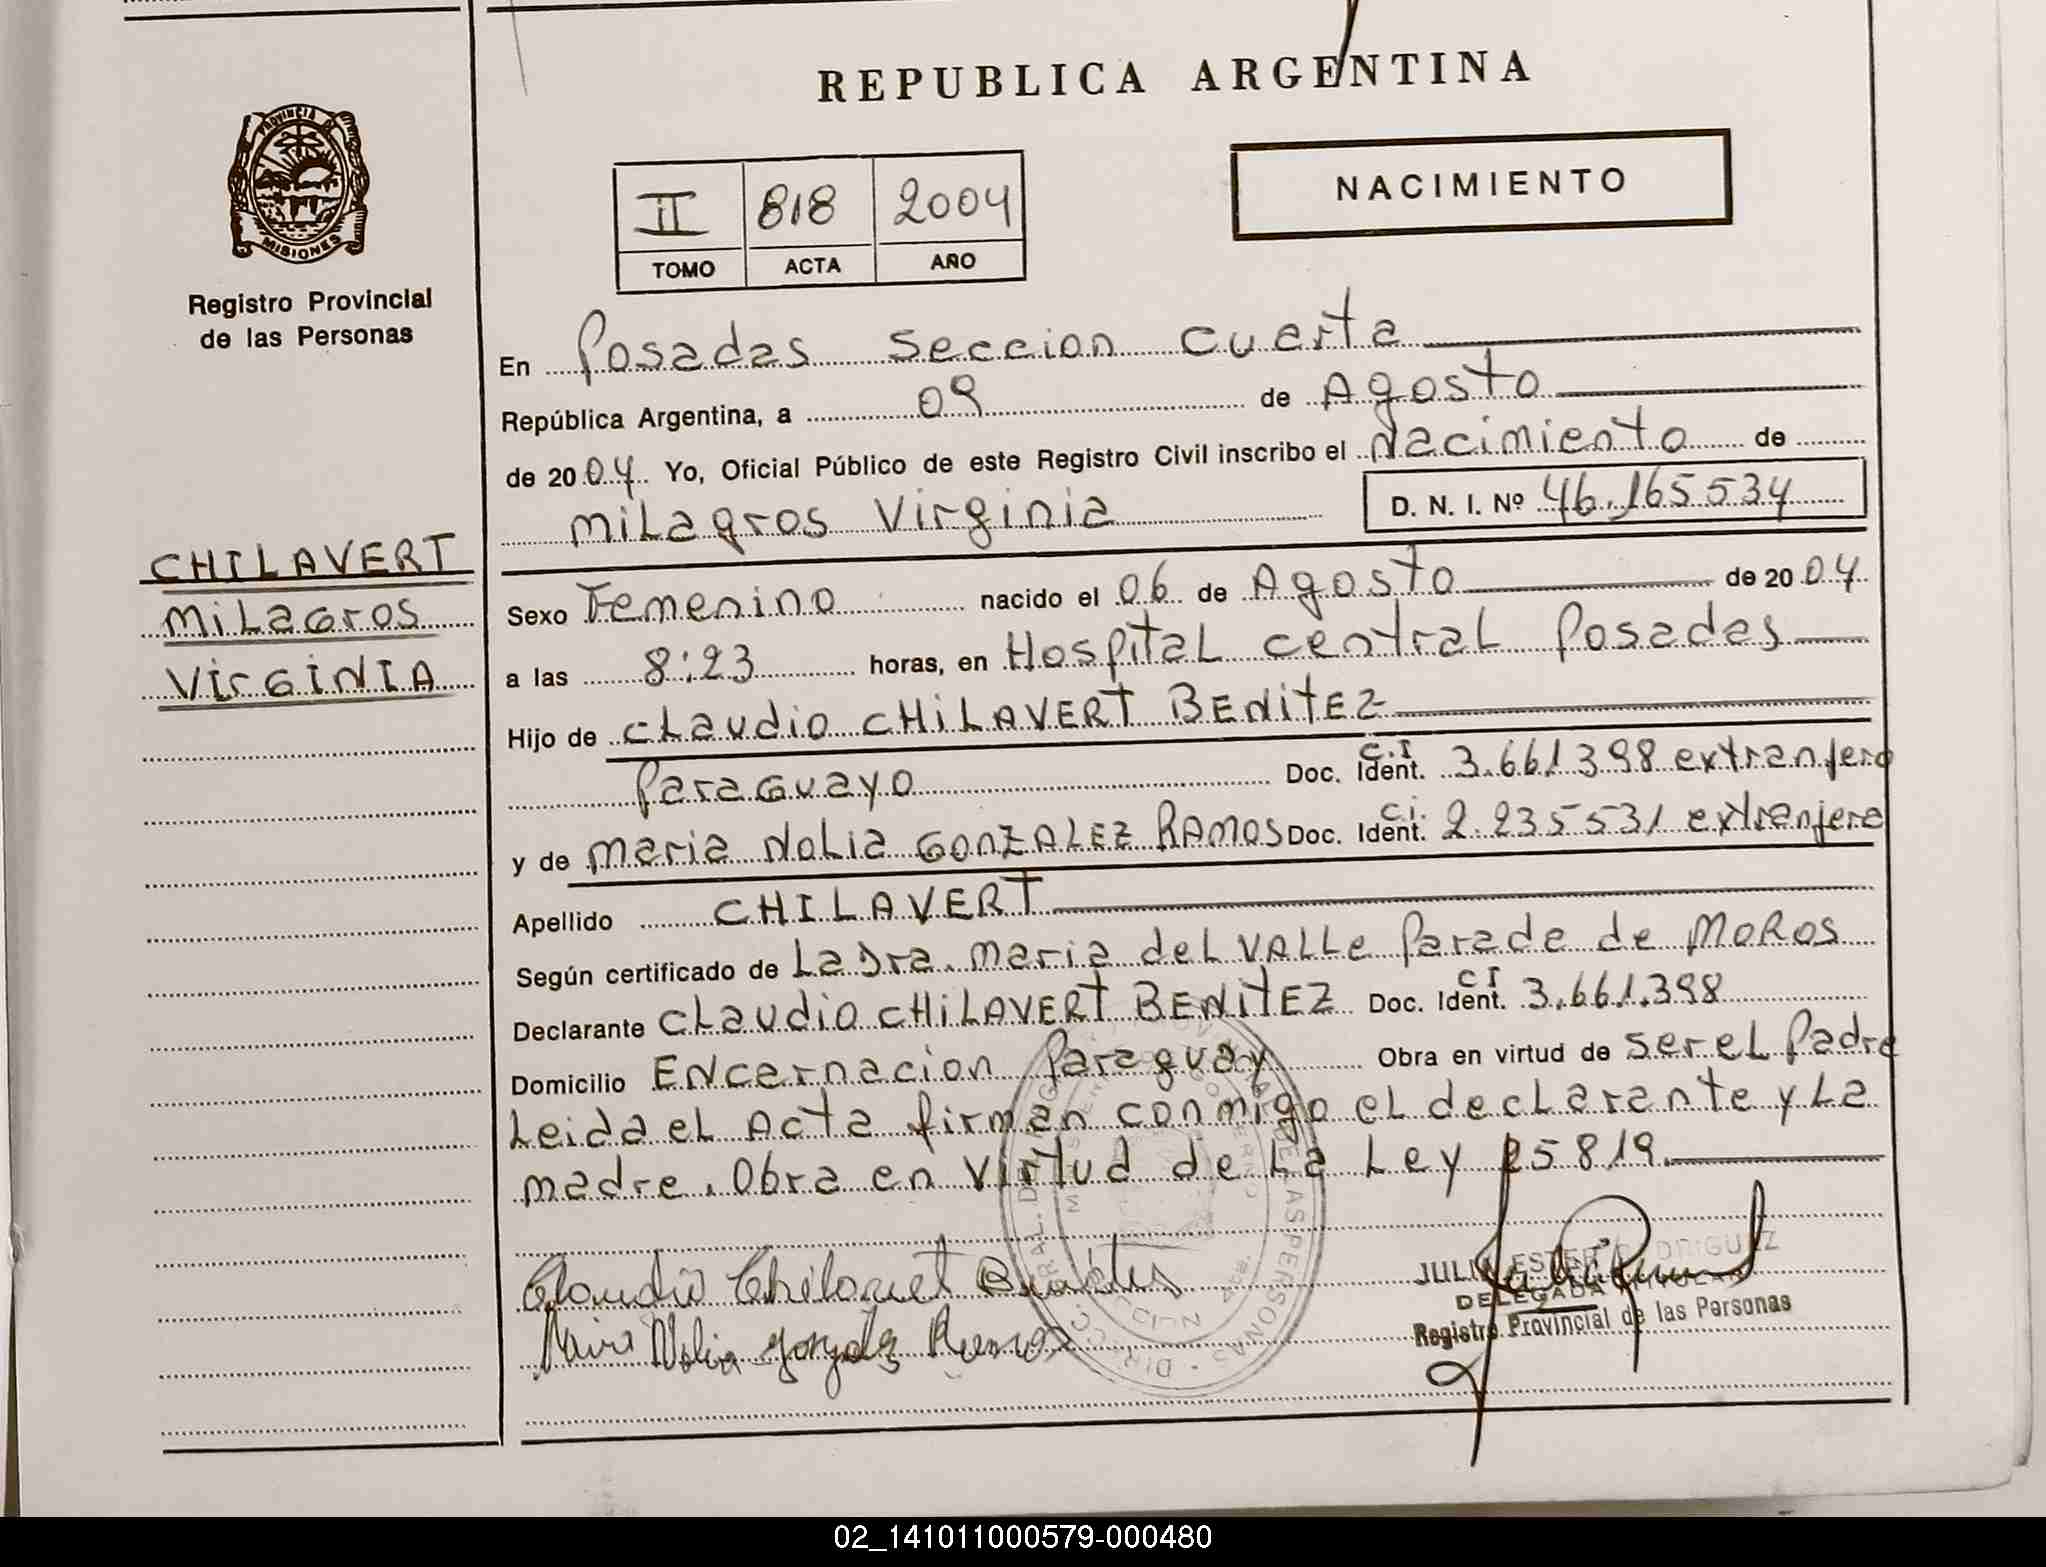 REPUBLICA ARGENTINA
PROVINCIA DE
MISIONES
Registro Provincial
de las Personas
NACIMIENTO
II 818 2004
TOMO ACTA AÑO
En Posadas Seccion cuarta
República Argentina, a 09 de Agosto
de 2004. Yo, Oficial Público de este Registro Civil inscribo el Nacimiento de
Milagros Virginia D. N. I. Nº 46.165534
CHILAVERT
MiLaGros
VirGiNIA
Sexo Femenino nacido el 06 de Agosto de 2004
a las 8:23 horas, en HospitaL centraL Posadas
Hijo de cLaudio CHiLAVERT BENiTEZ
ParaGuayo Doc. Ident. C.I 3.661.398 extranjero
y de maria NoLia GonZALEZ RAmos Doc. Ident. Ci. 2.235531 extranjera
Apellido CHILAVERT
Según certificado de La Dra. maria deL VALLe Parada de MoRos
Declarante cLaudio CHiLAVERT BENiTEZ Doc. Ident. CI 3.661.398
Domicilio ENcarnacion Paraguay Obra en virtud de ser eL Padre
Leida eL Acta firman conmigo eL decLarante y La
madre. Obra en Virtud de La Ley 25819.
Claudio Chilavert Benitez
Maria Nolia Gonzalez Ramos
JULIA ESTER RODRIGUEZ
DELEGADA
Registro Provincial de las Personas
02_141011000579-000480